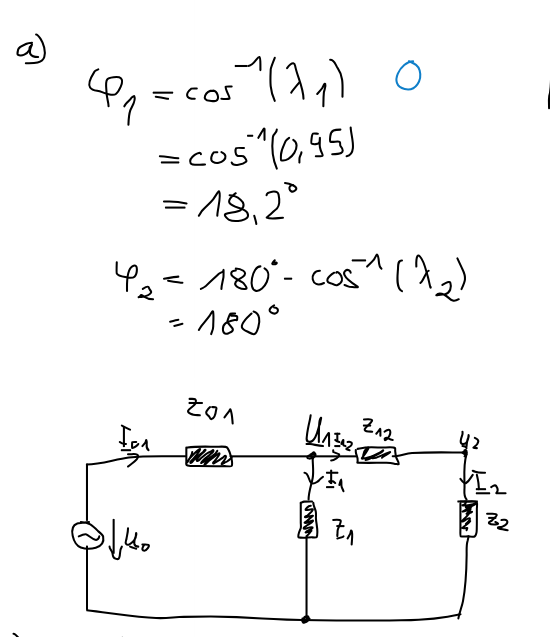 a)
φ₁ = cos⁻¹(λ₁) O
= cos⁻¹(0,95)
= 18,2°
φ₂ = 180° - cos⁻¹(λ₂)
= 180°
Z01
I01
U1 I12 Z12 U2
I1 I2
Z1 Z2
U0